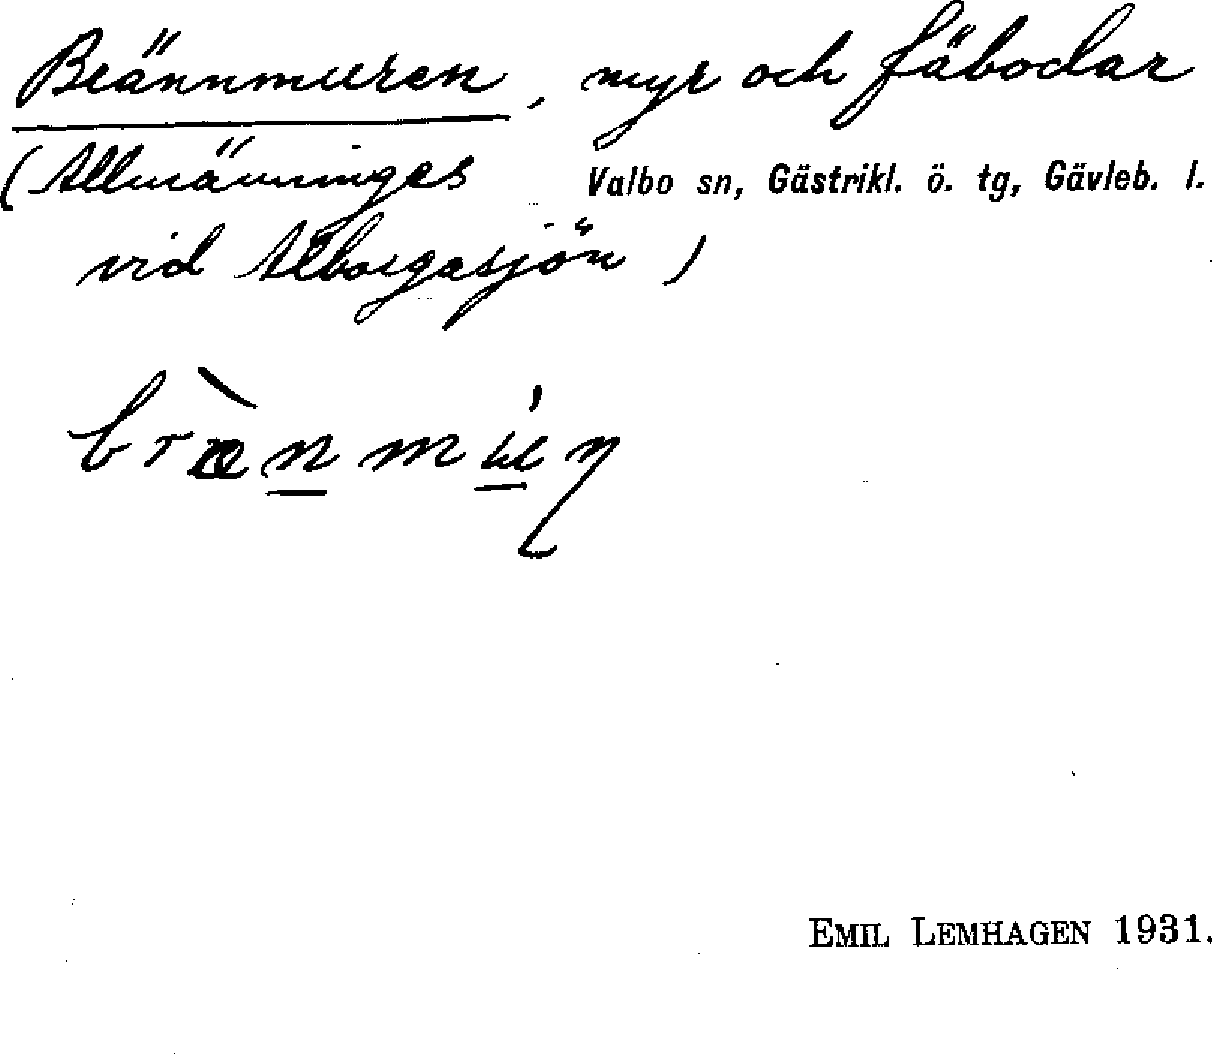 Brännmuren, myr och fäbodar
(Allmänninges Valbo sn, Gästrikl. ö. tg, Gävleb. l.
vid Alborgasjön)
EMIL LEMHAGEN 1931.